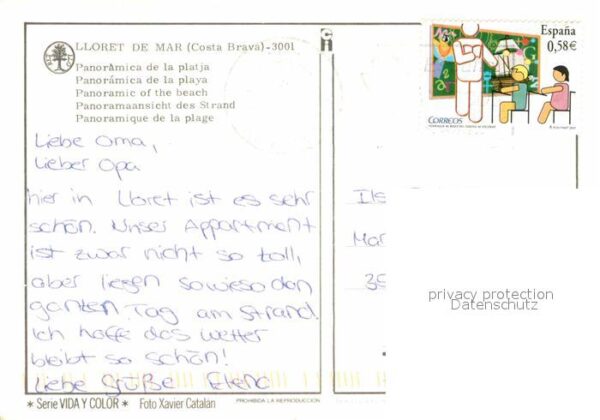 LLORET DE MAR (Costa Brava)-3001
Panoràmica de la platja
Panorámica de la playa
Panoramic of the beach
Panoramaansicht des Strand
Panoramique de la plage
España
0,58€
CORREOS
Liebe Oma,
Lieber Opa
hier in Lloret ist es sehr
schön. Unser Appartment
ist zwar nicht so toll,
aber liegen sowieso den
ganzen Tag am Strand.
Ich hoffe das Wetter
bleibt so schön!
Liebe Grüße Elena
Ils
Mar
privacy protection
Datenschutz
* Serie VIDA Y COLOR * Foto Xavier Catalán
PROHIBIDA LA REPRODUCCIÓN